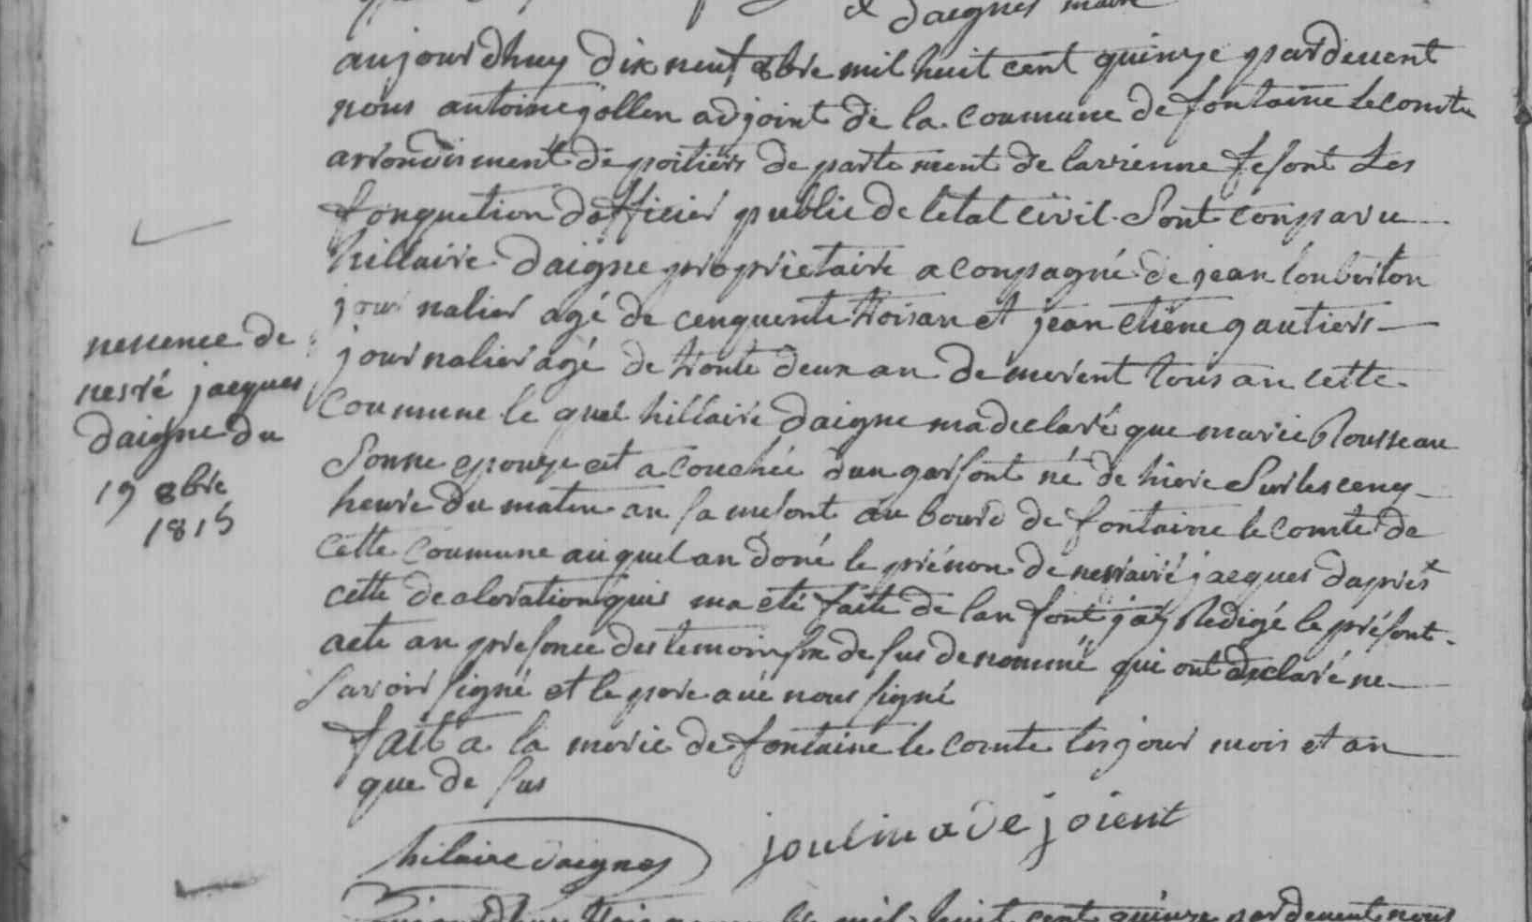 & daignes maire
aujourdhuy dix neuf 8bre mil huit cent quinze pardevent
nous antoine gollen adjoint de la coumune de fontaine le comte
arrondisment de poitiers de parte ment de la vienne fesont les
fonquetion dofficier public de letat civil. Sont conparu
hillaire daigne proprietaire aconpagné de jean louberton
journalier agé de cenquente troisan et jean etiene gautiers
journalier agé de trente deux an demeurent tous an cette
Coumune le quel hillaire daigne madeclaré que marie Rousseau
Sonne epouze est acouchée dun garsont né de hiere Surlesceng
heure du maten an sa mesont au bourd de fontaine le comte de
cette coumune auquel an doné le prénon de jacques dapres
cette declaration quis ma eté faite de lan font jay Redigé le présent
acte an presence des temoins de sus denommé qui ont declaré ne
Savoir signé et le pere avec nous signé
fait a la merie de fontaine le comte les jour mois et an
que de sus
hilaire daignes
joulin adejoient
nessence de
jacques
daigne du
19 8bre
1815
mil huit cent quinze pardevent nous